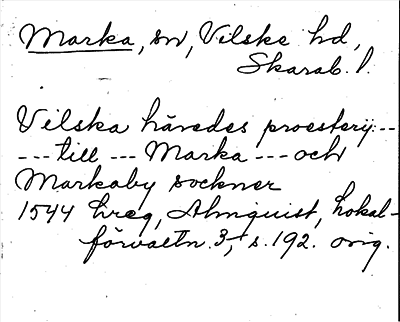 Marka, sn, Vilske hd,
Skarab. l.
Vilska häredes proesterij---
--- till --- Marka --- och
Markaby sockner
1544 hreg, Almquist, Lokal-
förvaltn. 3, s. 192. orig.